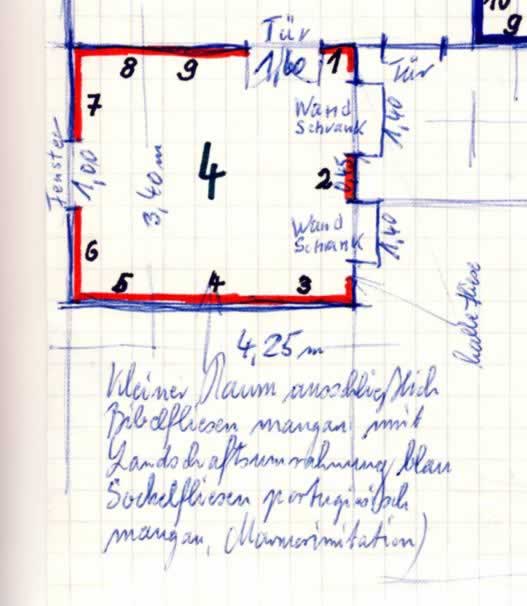 10
9
Tür
8
9
1,60
1
Tür
7
Wand
Schrank
1,40
Fenster
1,00
3,40 m
4
2
0,45
6
Wand
Schrank
1,40
5
4
3
halbe Fliese
4,25 m
Kleiner Raum ausschließlich
Bibelfliesen mangan mit
Landschaftsumrahmung blau
Sockelfliesen portugiesisch
mangan, Marmorimitation)